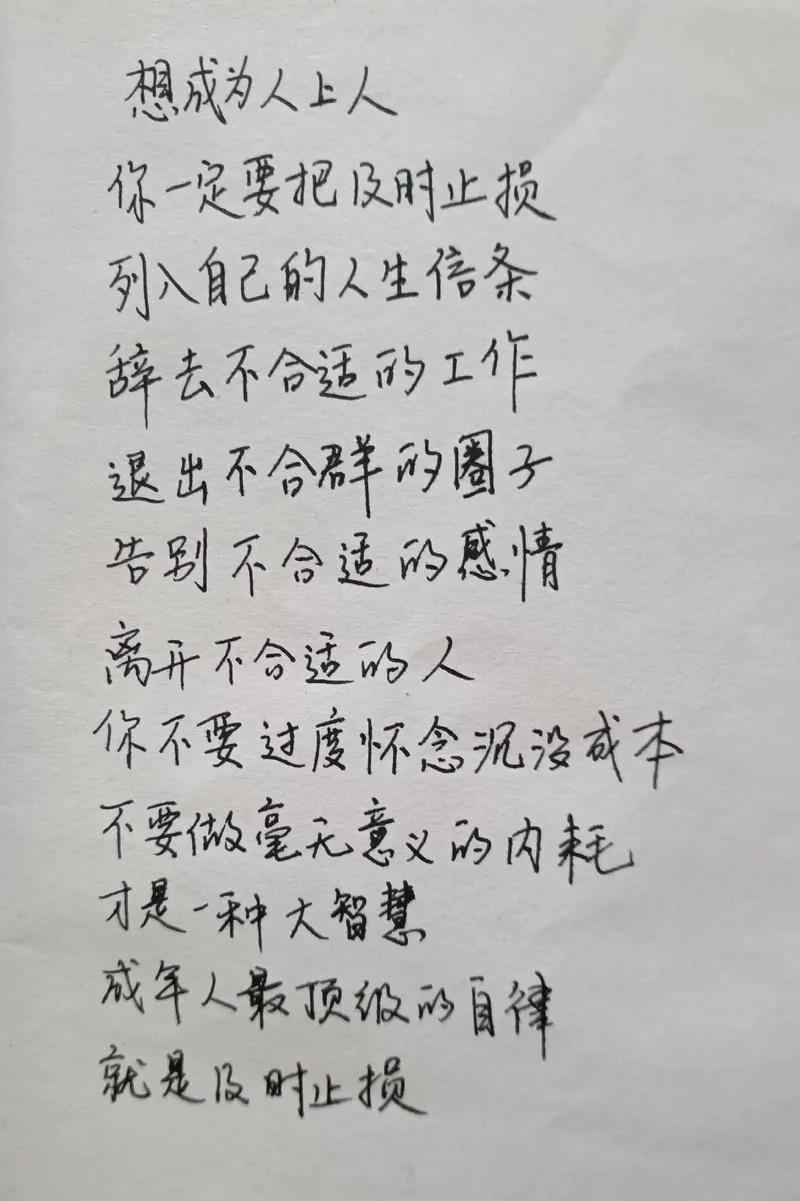 想成为人上人
你一定要把及时止损
列入自己的人生信条
辞去不合适的工作
退出不合群的圈子
告别不合适的感情
离开不合适的人
你不要过度怀念沉没成本
不要做毫无意义的内耗
才是一种大智慧
成年人最顶级的自律
就是及时止损